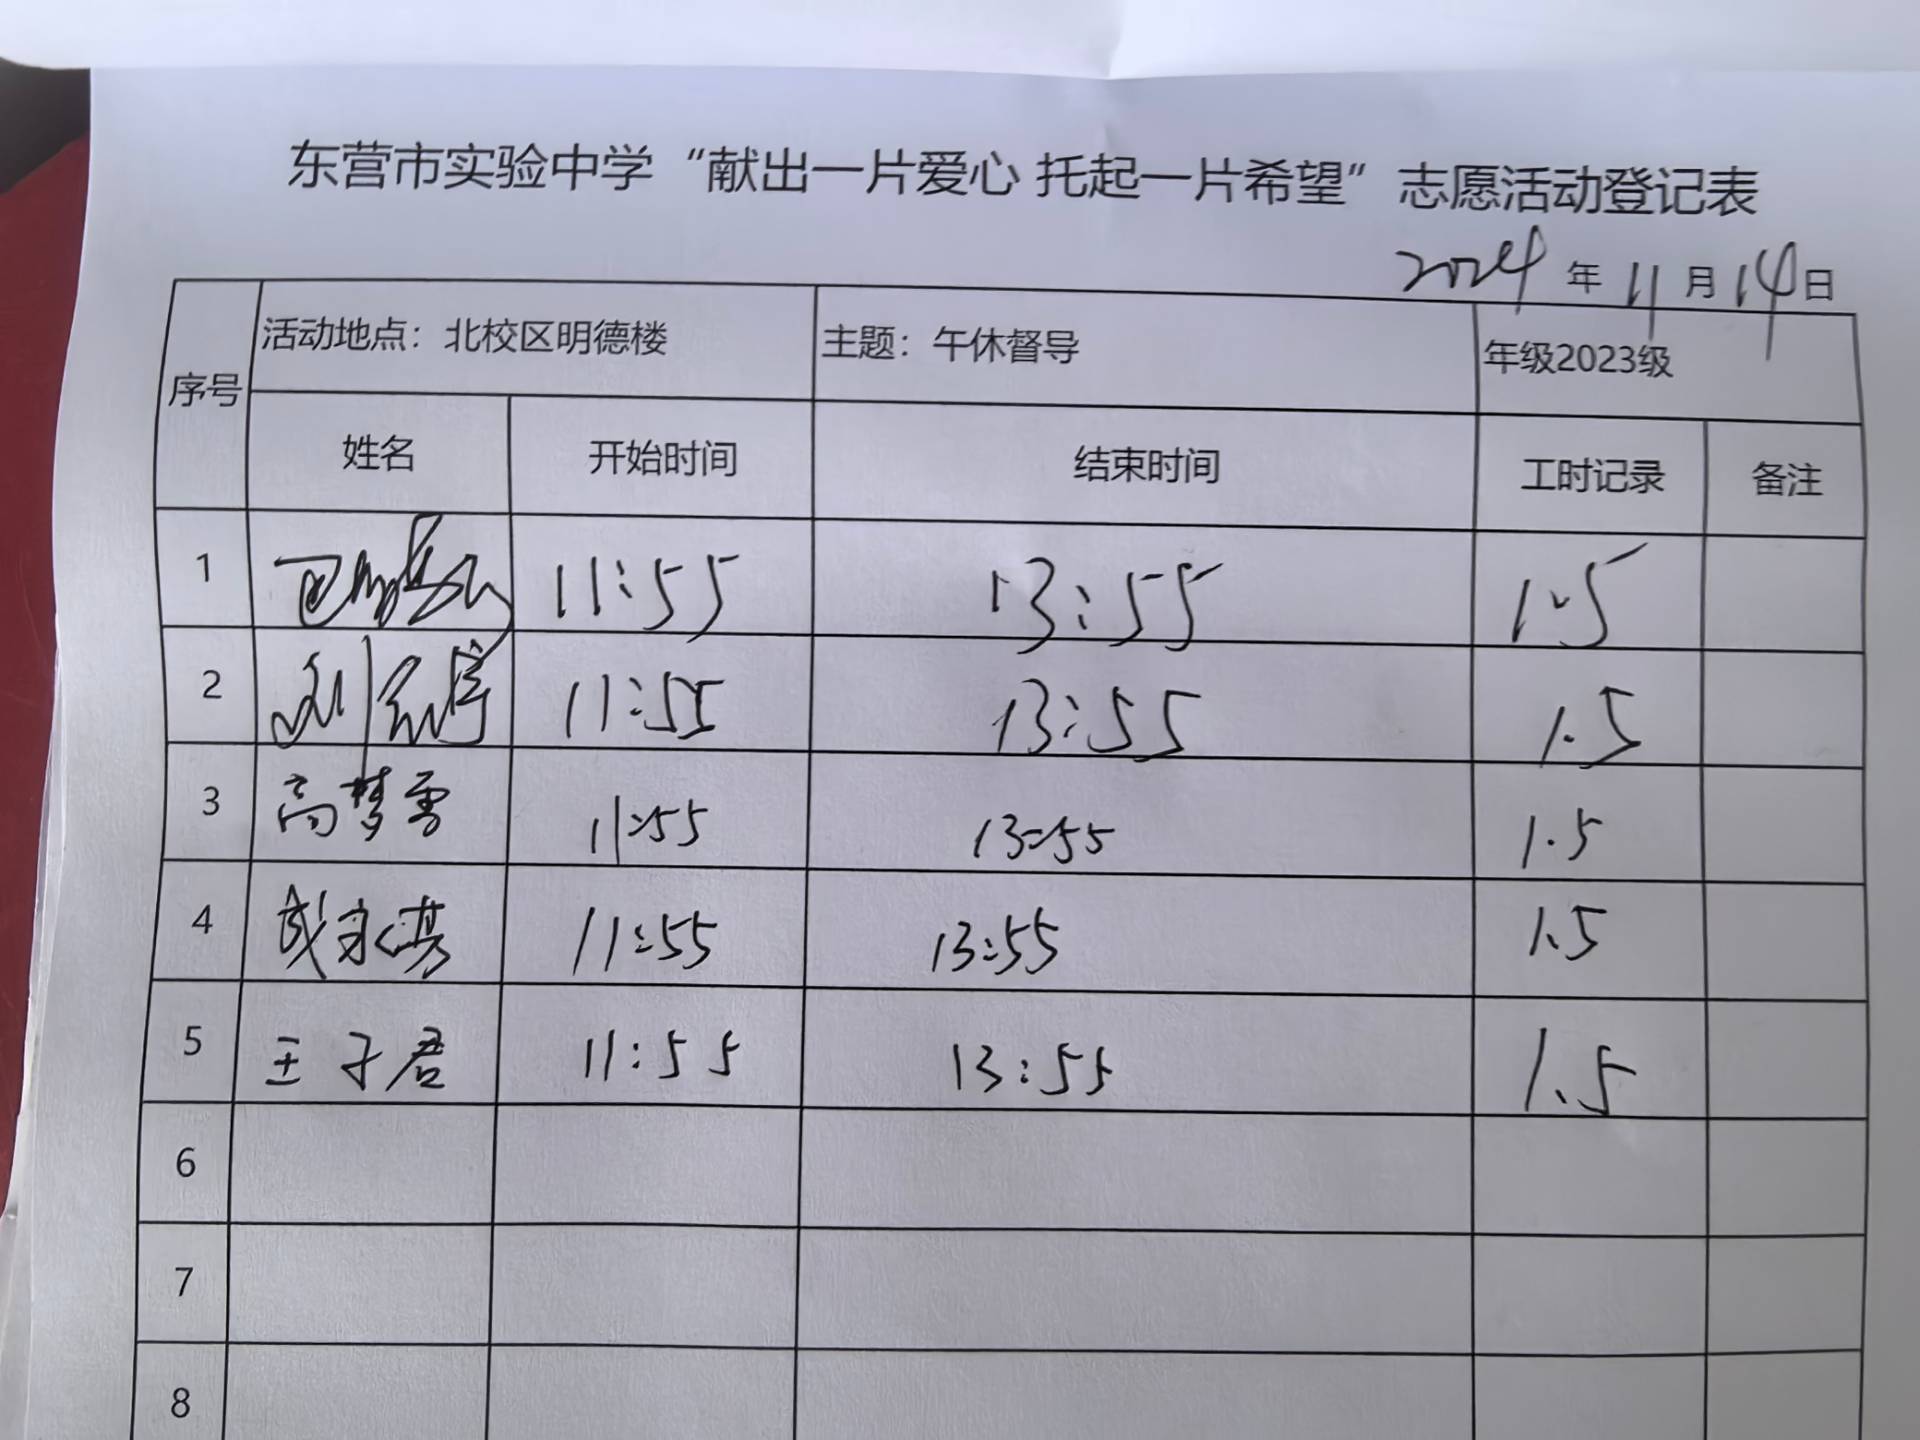 东营市实验中学“献出一片爱心 托起一片希望”志愿活动登记表
2024年11月14日
序号 活动地点：北校区明德楼 主题：午休督导 年级2023级
姓名 开始时间 结束时间 工时记录 备注
1 11:55 13:55 1.5
2 刘 11:55 13:55 1.5
3 高梦雪 11:55 13:55 1.5
4 成永洪 11:55 13:55 1.5
5 王子君 11:55 13:55 1.5
6
7
8